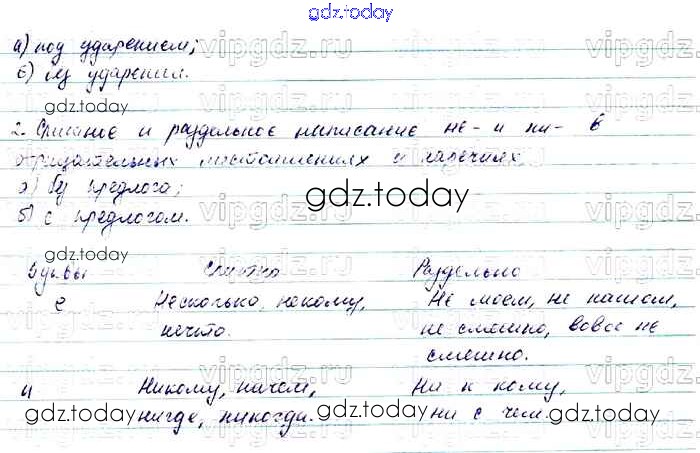 gdz.today
а) под ударением;
б) без ударения.
gdz.today
2. Слитное и раздельное написание не- и ни- в
отрицательных местоимениях и наречиях
а) без предлога;
б) с предлогом.
gdz.today
Буквы Слитно Раздельно
е Несколько, некому, Не моем, не нашем,
нечто. не смешно, вовсе не
смешно.
и Никому, ничем, Ни к кому,
нигде, никогда. ни с чем.
gdz.today gdz.today gdz.today